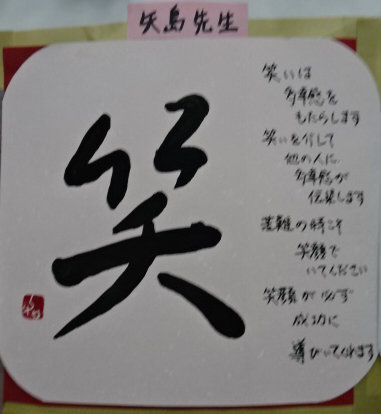 矢島先生
笑
笑いは
多幸感を
もたらします
笑いを介して
他の人に
多幸感が
伝染します
苦難の時こそ
笑顔で
いてください
笑顔が必ず
成功に
導びいてくれます